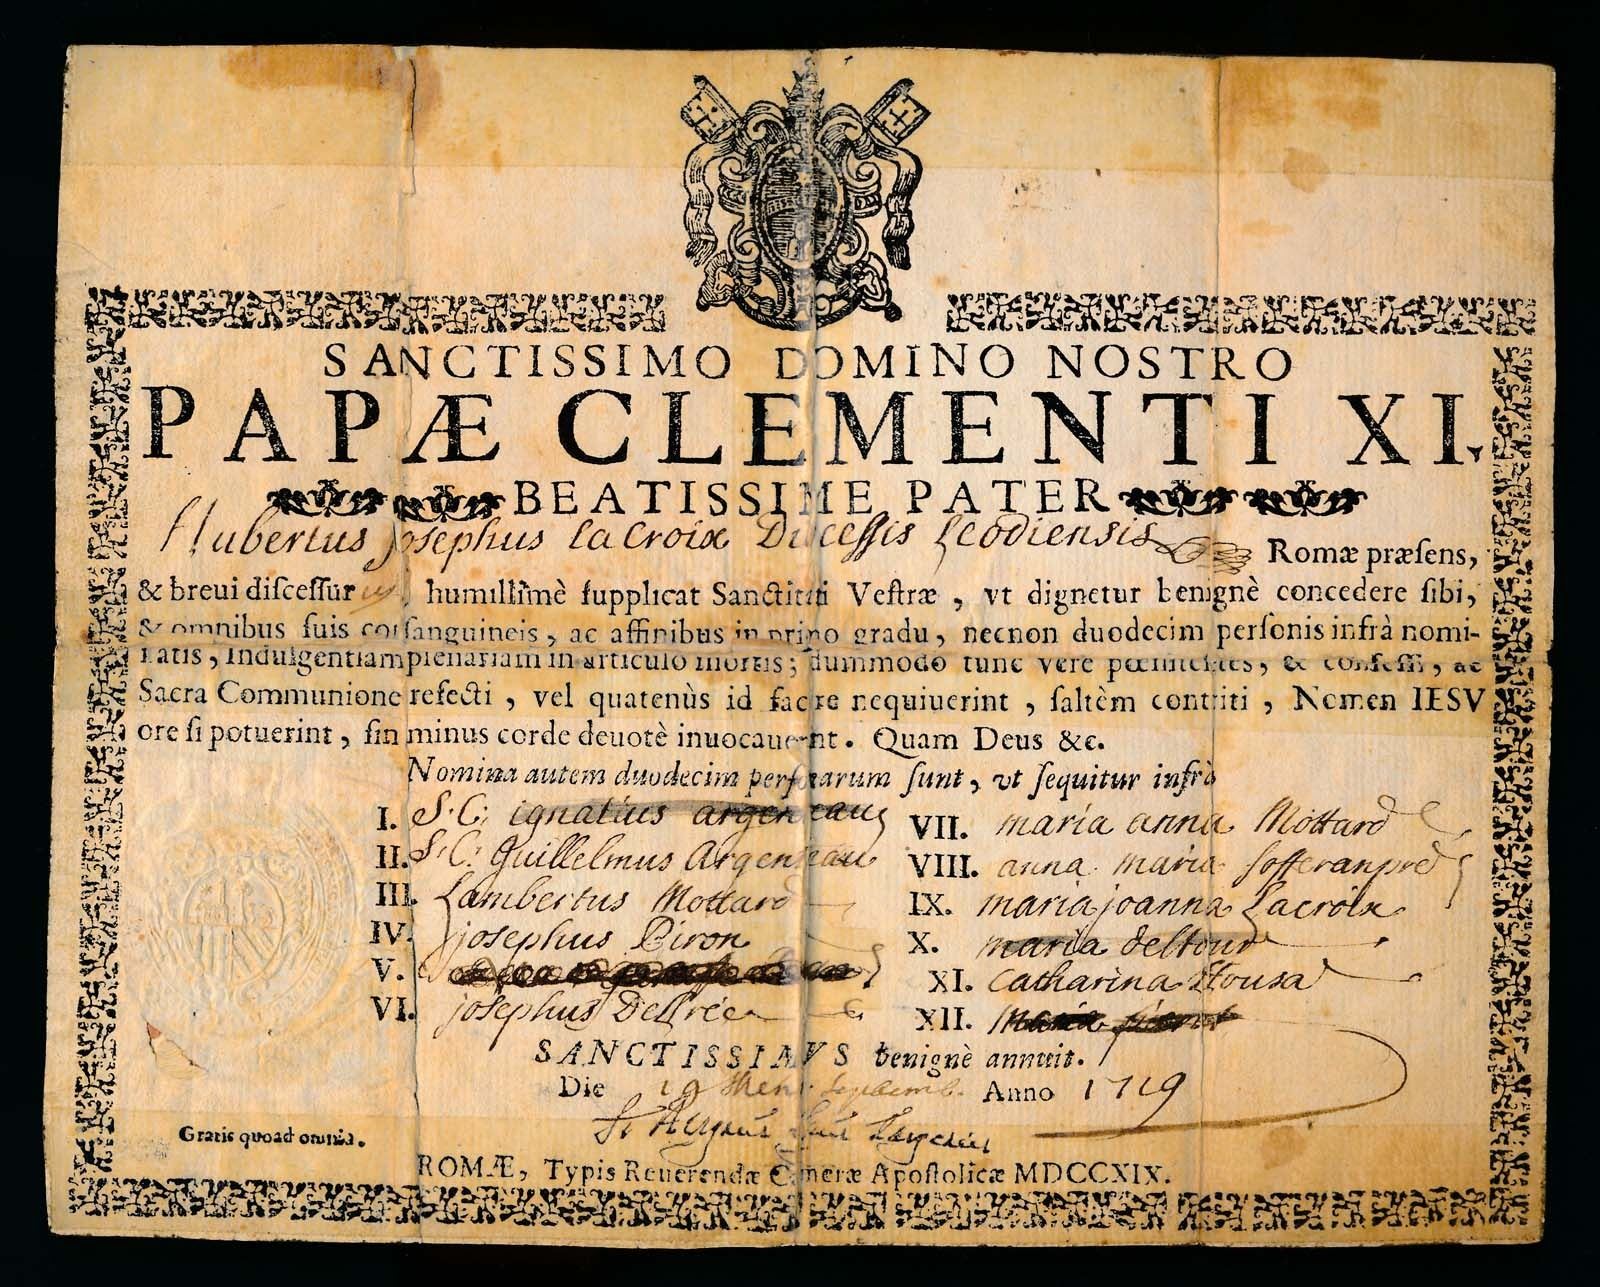 SANCTISSIMO DOMINO NOSTRO
PAPÆ CLEMENTI XI.
BEATISSIME PATER
Hubertus josephus laCroix Diecessis Leodiensis Romæ præsens,
& breui discessurus humillimè supplicat Sanctitati Vestræ, vt dignetur benignè concedere sibi,
& omnibus suis consanguineis, ac affinibus in primo gradu, necnon duodecim personis infrà nomi-
natis, Indulgentiam plenariam in articulo mortis; dummodo tunc vere pœnitentes, & confessi, ac
Sacra Communione refecti, vel quatenùs id facere nequiuerint, saltèm contriti, Nomen IESV
ore si potuerint, sin minus corde deuotè inuocauerint. Quam Deus &c.
Nomina autem duodecim personarum sunt, vt sequitur infrà
I. S.C. ignatius argenteau
II. S.C. Guillelmus Argenteau
III. Lambertus Mottard
IV. josephus Piron
V.
VI. josephus Delrée
VII. maria anna Mottard
VIII. anna maria
IX. maria joanna Lacroix
X. maria deltour
XI. Catharina
XII. Maria
SANCTISSIMVS benignè annuit.
Die 19 Mens Septemb. Anno 1719
Gratis quoad omnia.
ROMÆ, Typis Reuerendæ Cameræ Apostolicæ MDCCXIX.